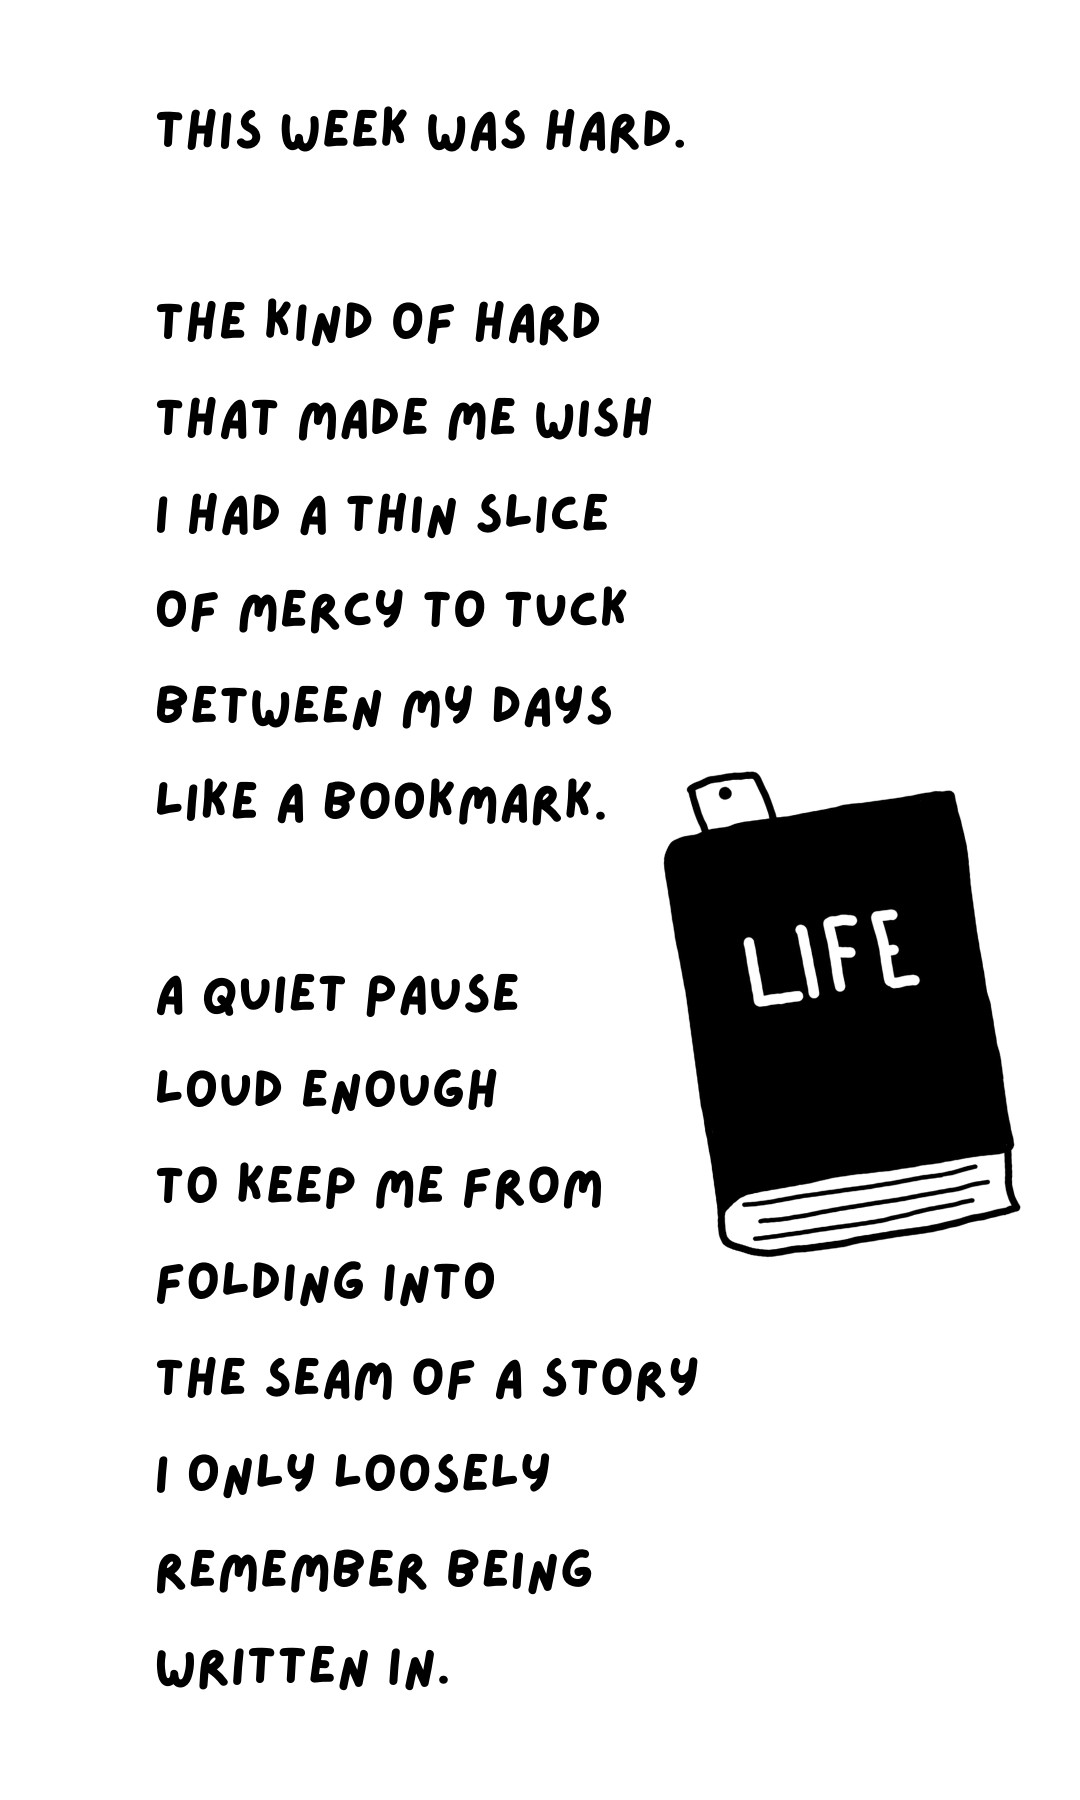 THIS WEEK WAS HARD.
THE KIND OF HARD
THAT MADE ME WISH
I HAD A THIN SLICE
OF MERCY TO TUCK
BETWEEN MY DAYS
LIKE A BOOKMARK.
LIFE
A QUIET PAUSE
LOUD ENOUGH
TO KEEP ME FROM
FOLDING INTO
THE SEAM OF A STORY
I ONLY LOOSELY
REMEMBER BEING
WRITTEN IN.